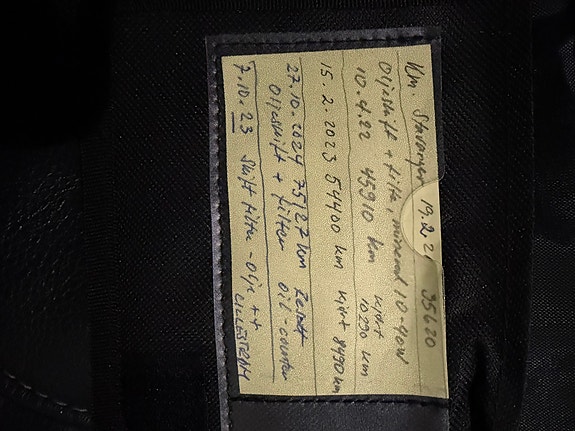 Km. Stavanger 19.2.2 35620
Oljeskift + filter, mineral 10-40W
10.4.22 45910 km kjørt 10290 km
15.2.2023 54400 km kjørt 8490 km
27.10.2024 75127 km Zerost
Oljeskift + filter oil-counter
7.10.23 skift filter - olje ++
LILLESTRØM